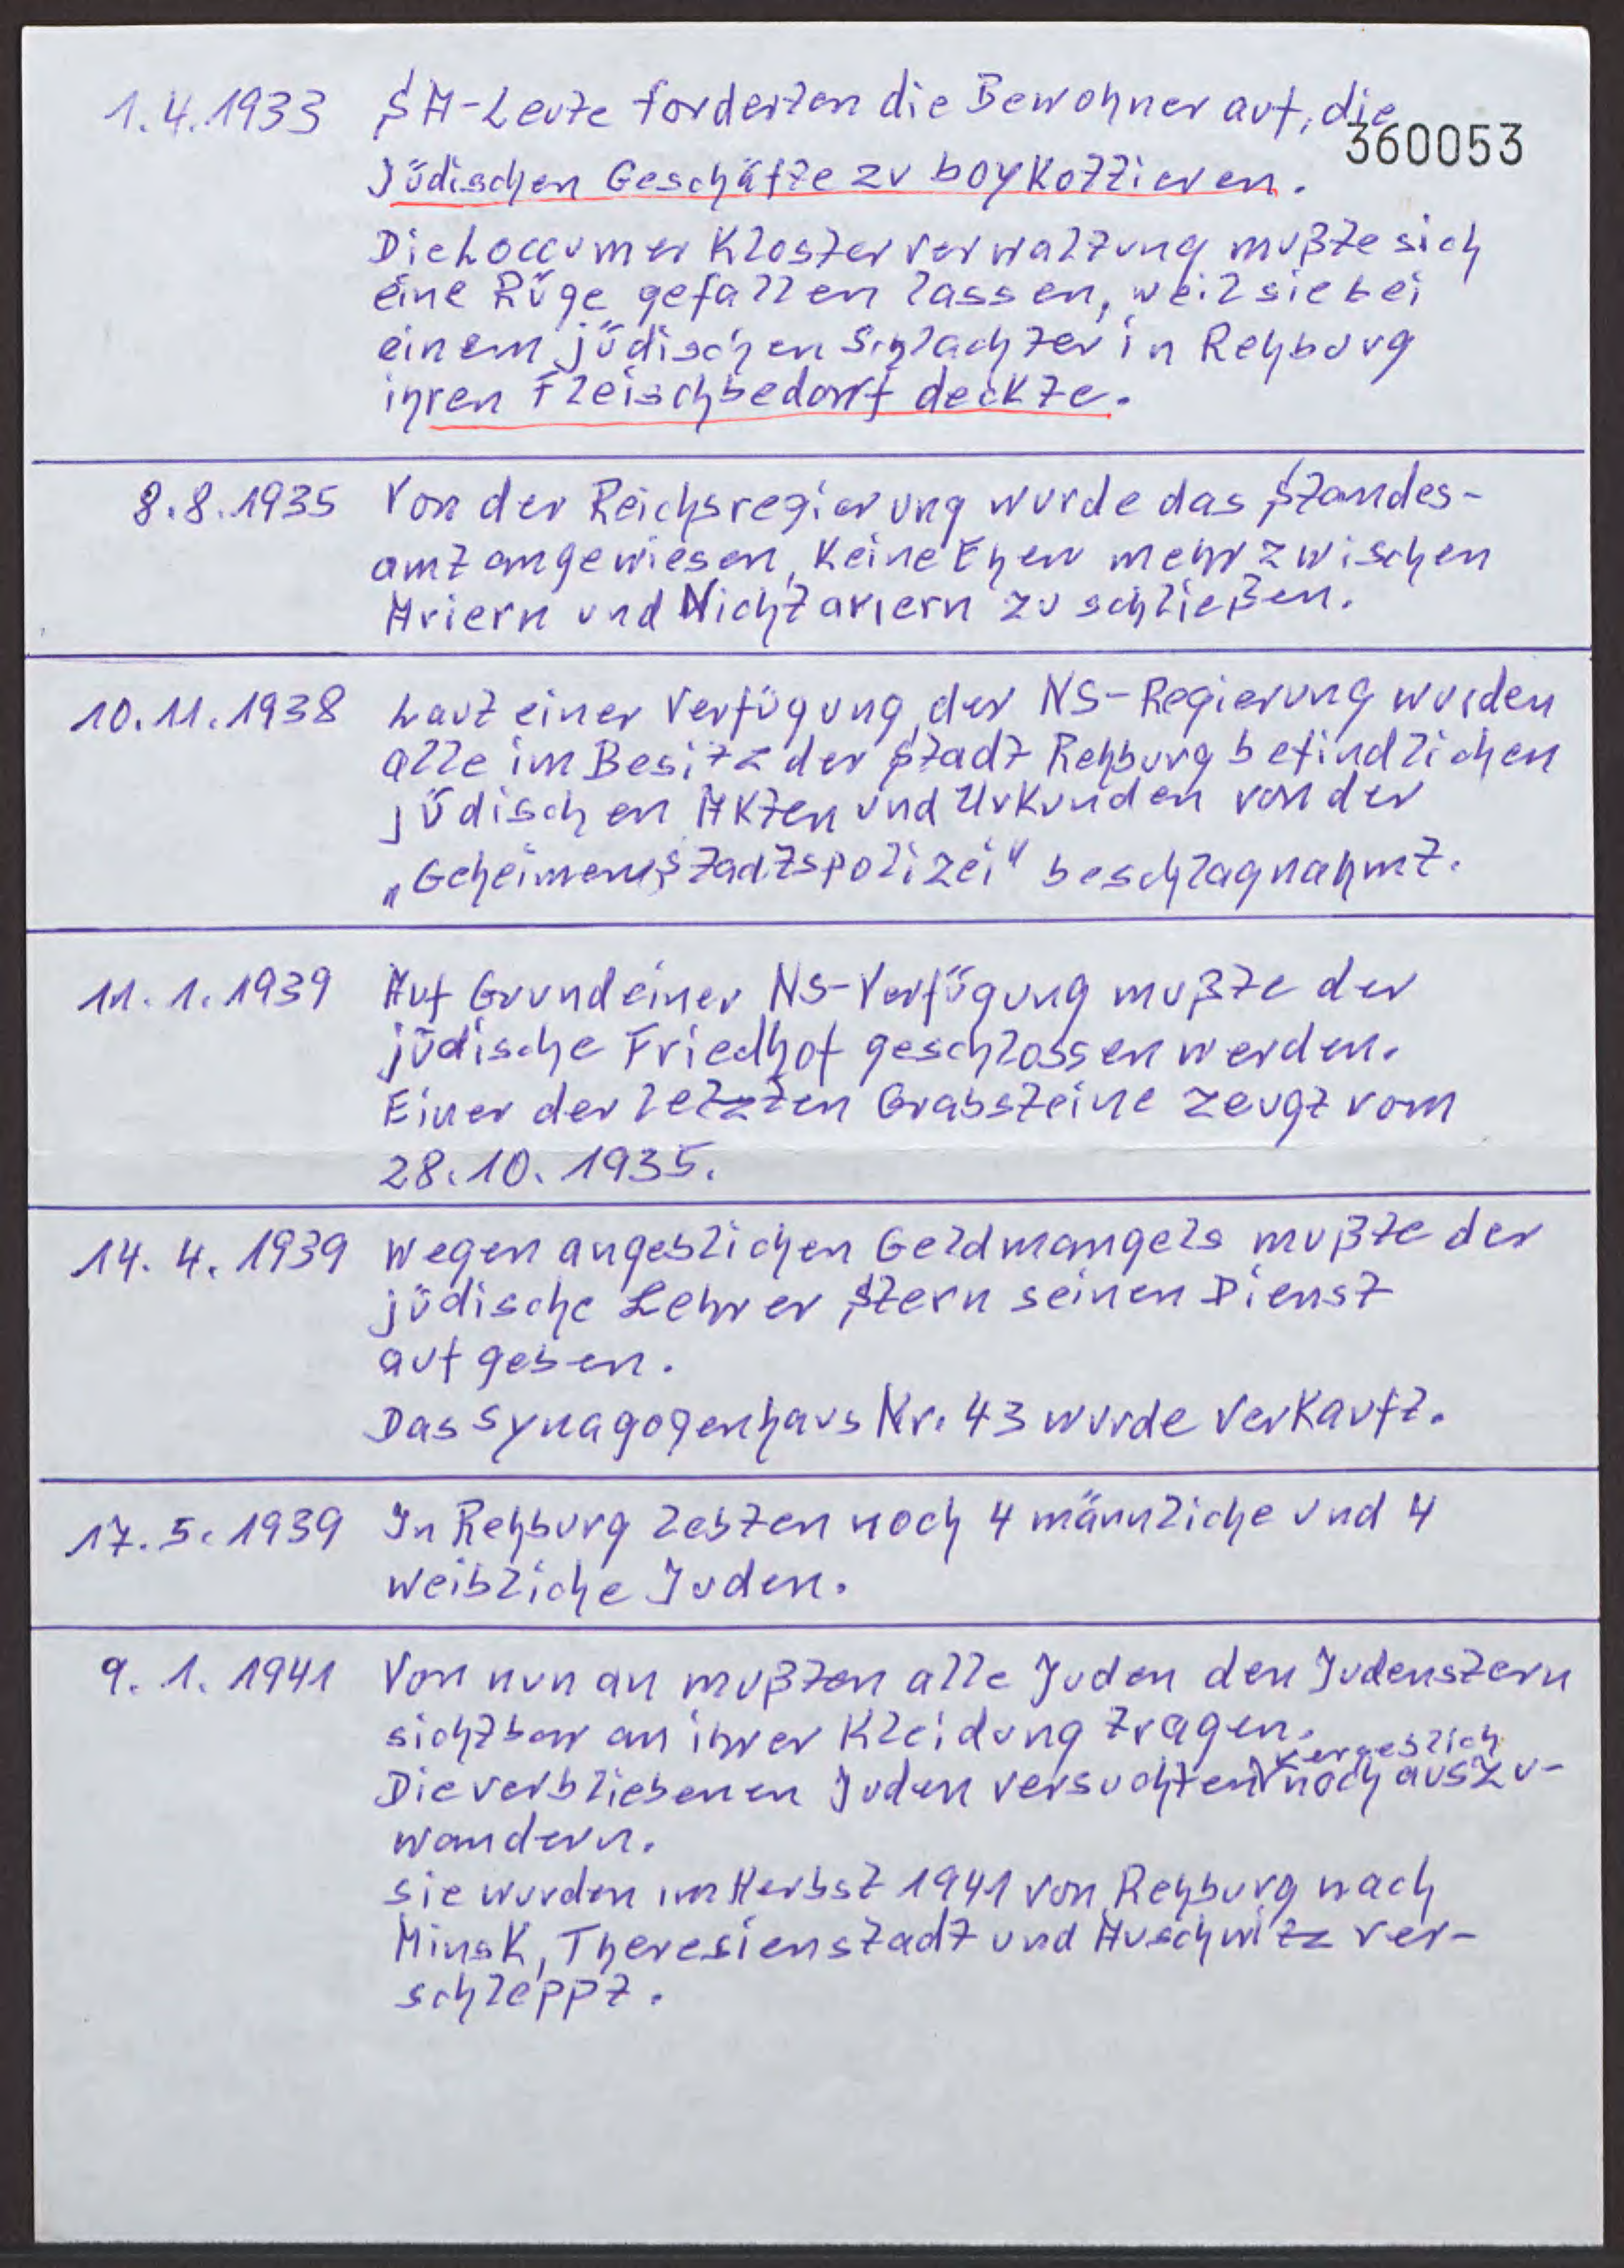 1.4.1933 SA-Leute forderten die Bewohner auf, die
360053
jüdischen Geschäfte zu boykottieren.
Die Loccumer Klosterverwaltung mußte sich
eine Rüge gefallen lassen, weil sie bei
einem jüdischen Schlachter in Rehburg
ihren Fleischbedarf deckte.
8.8.1935 Von der Reichsregierung wurde das Standes-
amt angewiesen, keine Ehen mehr zwischen
Ariern und Nichtariern zu schließen.
10.11.1938 Laut einer Verfügung der NS-Regierung wurden
alle im Besitz der Stadt Rehburg befindlichen
jüdischen Akten und Urkunden von der
„Geheimen Stadtspolizei" beschlagnahmt.
11.1.1939 Auf Grund einer NS-Verfügung mußte der
jüdische Friedhof geschlossen werden.
Einer der letzten Grabsteine zeugt vom
28.10.1935.
14.4.1939 Wegen angeblichen Geldmangels mußte der
jüdische Lehrer Stern seinen Dienst
aufgeben.
Das Synagogenhaus Nr. 43 wurde verkauft.
17.5.1939 In Rehburg lebten noch 4 männliche und 4
weibliche Juden.
9.1.1941 Von nun an mußten alle Juden den Judenstern
sichtbar an ihrer Kleidung tragen.
vergeblich
Die verbliebenen Juden versuchten noch auszu-
wandern.
Sie wurden im Herbst 1941 von Rehburg nach
Minsk, Theresienstadt und Auschwitz ver-
schleppt.